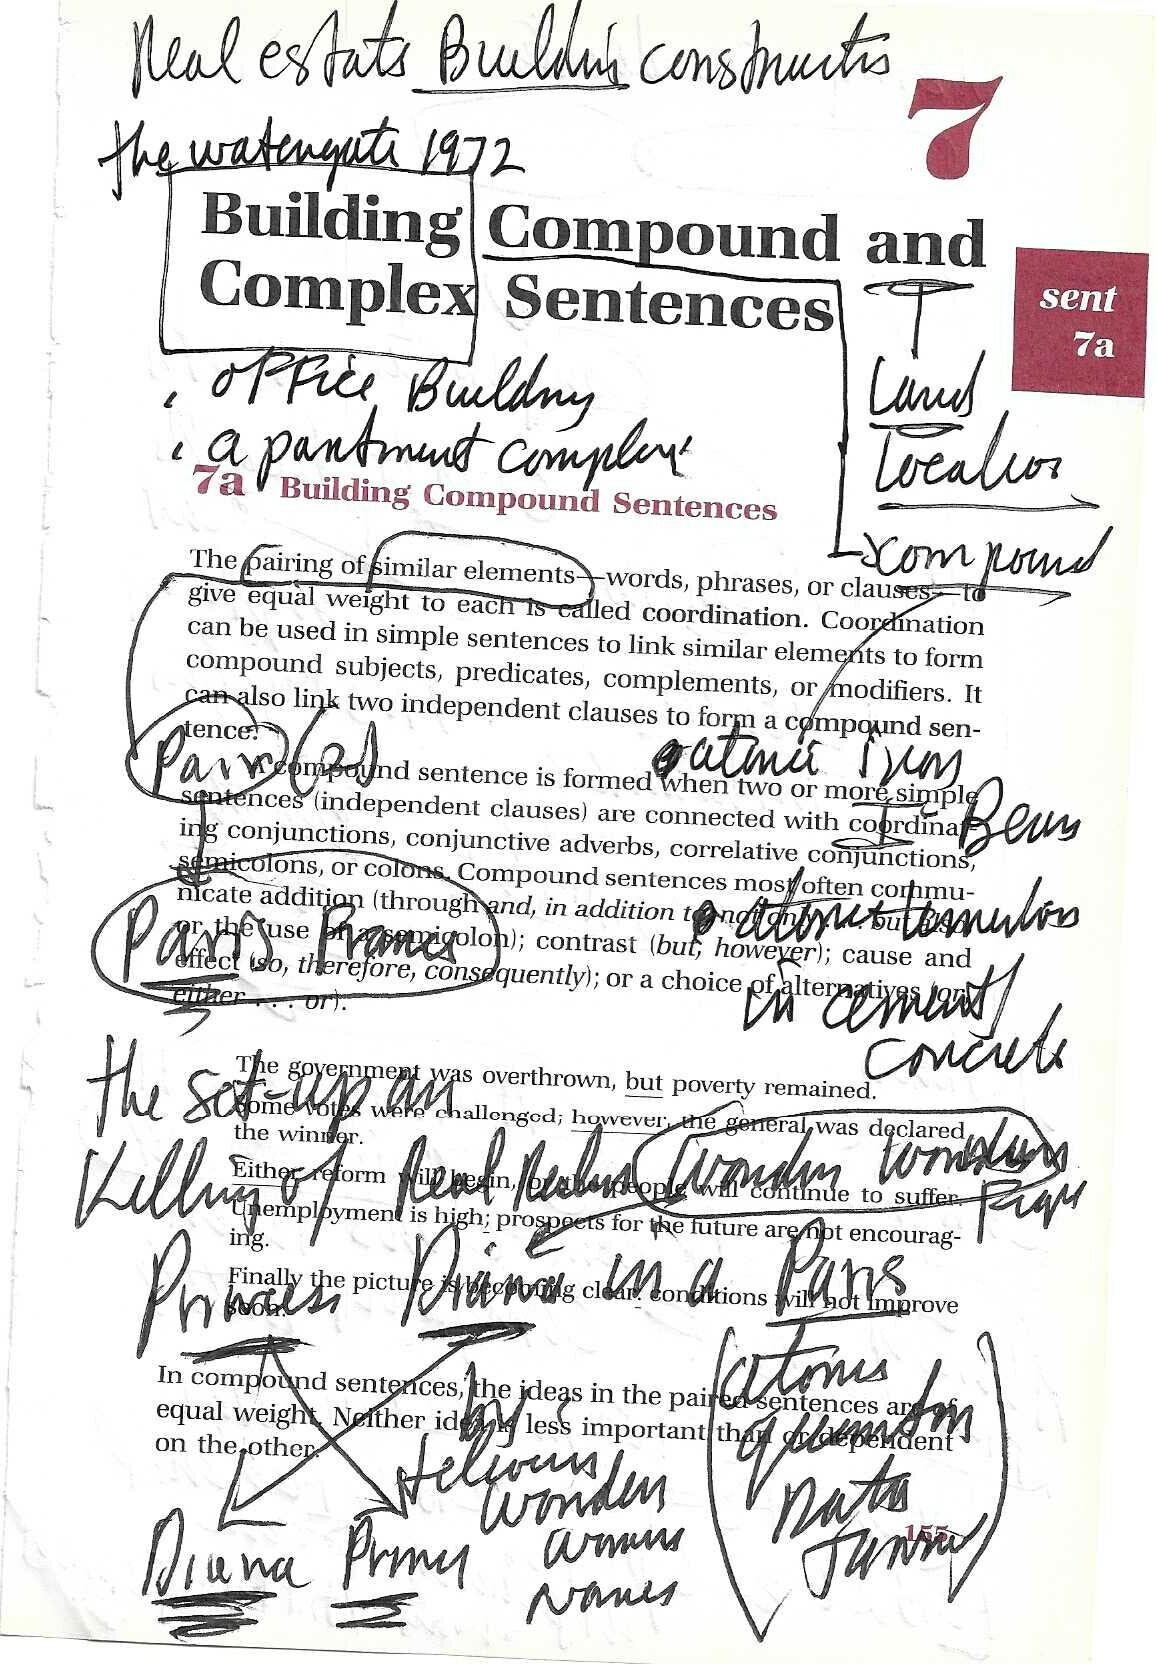 Real estats Building constructis
the watergate 1972
7
Building Compound and
Complex Sentences
sent
7a
office Building
apartment complex
Land
Location
compound
7a Building Compound Sentences
The pairing of similar elements—words, phrases, or clauses—to
give equal weight to each is called coordination. Coordination
can be used in simple sentences to link similar elements to form
compound subjects, predicates, complements, or modifiers. It
can also link two independent clauses to form a compound sen-
tence.
Pair (s)
A compound sentence is formed when two or more simple
sentences (independent clauses) are connected with coordinat-
ing conjunctions, conjunctive adverbs, correlative conjunctions,
semicolons, or colons. Compound sentences most often commu-
nicate addition (through and, in addition to, not only . . . but also,
or the use of a semicolon); contrast (but, however); cause and
effect (so, therefore, consequently); or a choice of alternatives (or,
either . . . or).
I Beam
Paris France
in cement
concrete
The government was overthrown, but poverty remained.
Some votes were challenged; however, the general was declared
the winner.
Either reform will begin, or the people will continue to suffer.
Unemployment is high; prospects for the future are not encourag-
ing.
Finally the picture is becoming clear: conditions will not improve
soon.
the set-up an
Killing of Real
Princess Diana in a Paris
In compound sentences, the ideas in the paired sentences are of
equal weight. Neither idea is less important than or dependent
on the other.
by:
atoms
quantos
Data
wonders
Diana
155